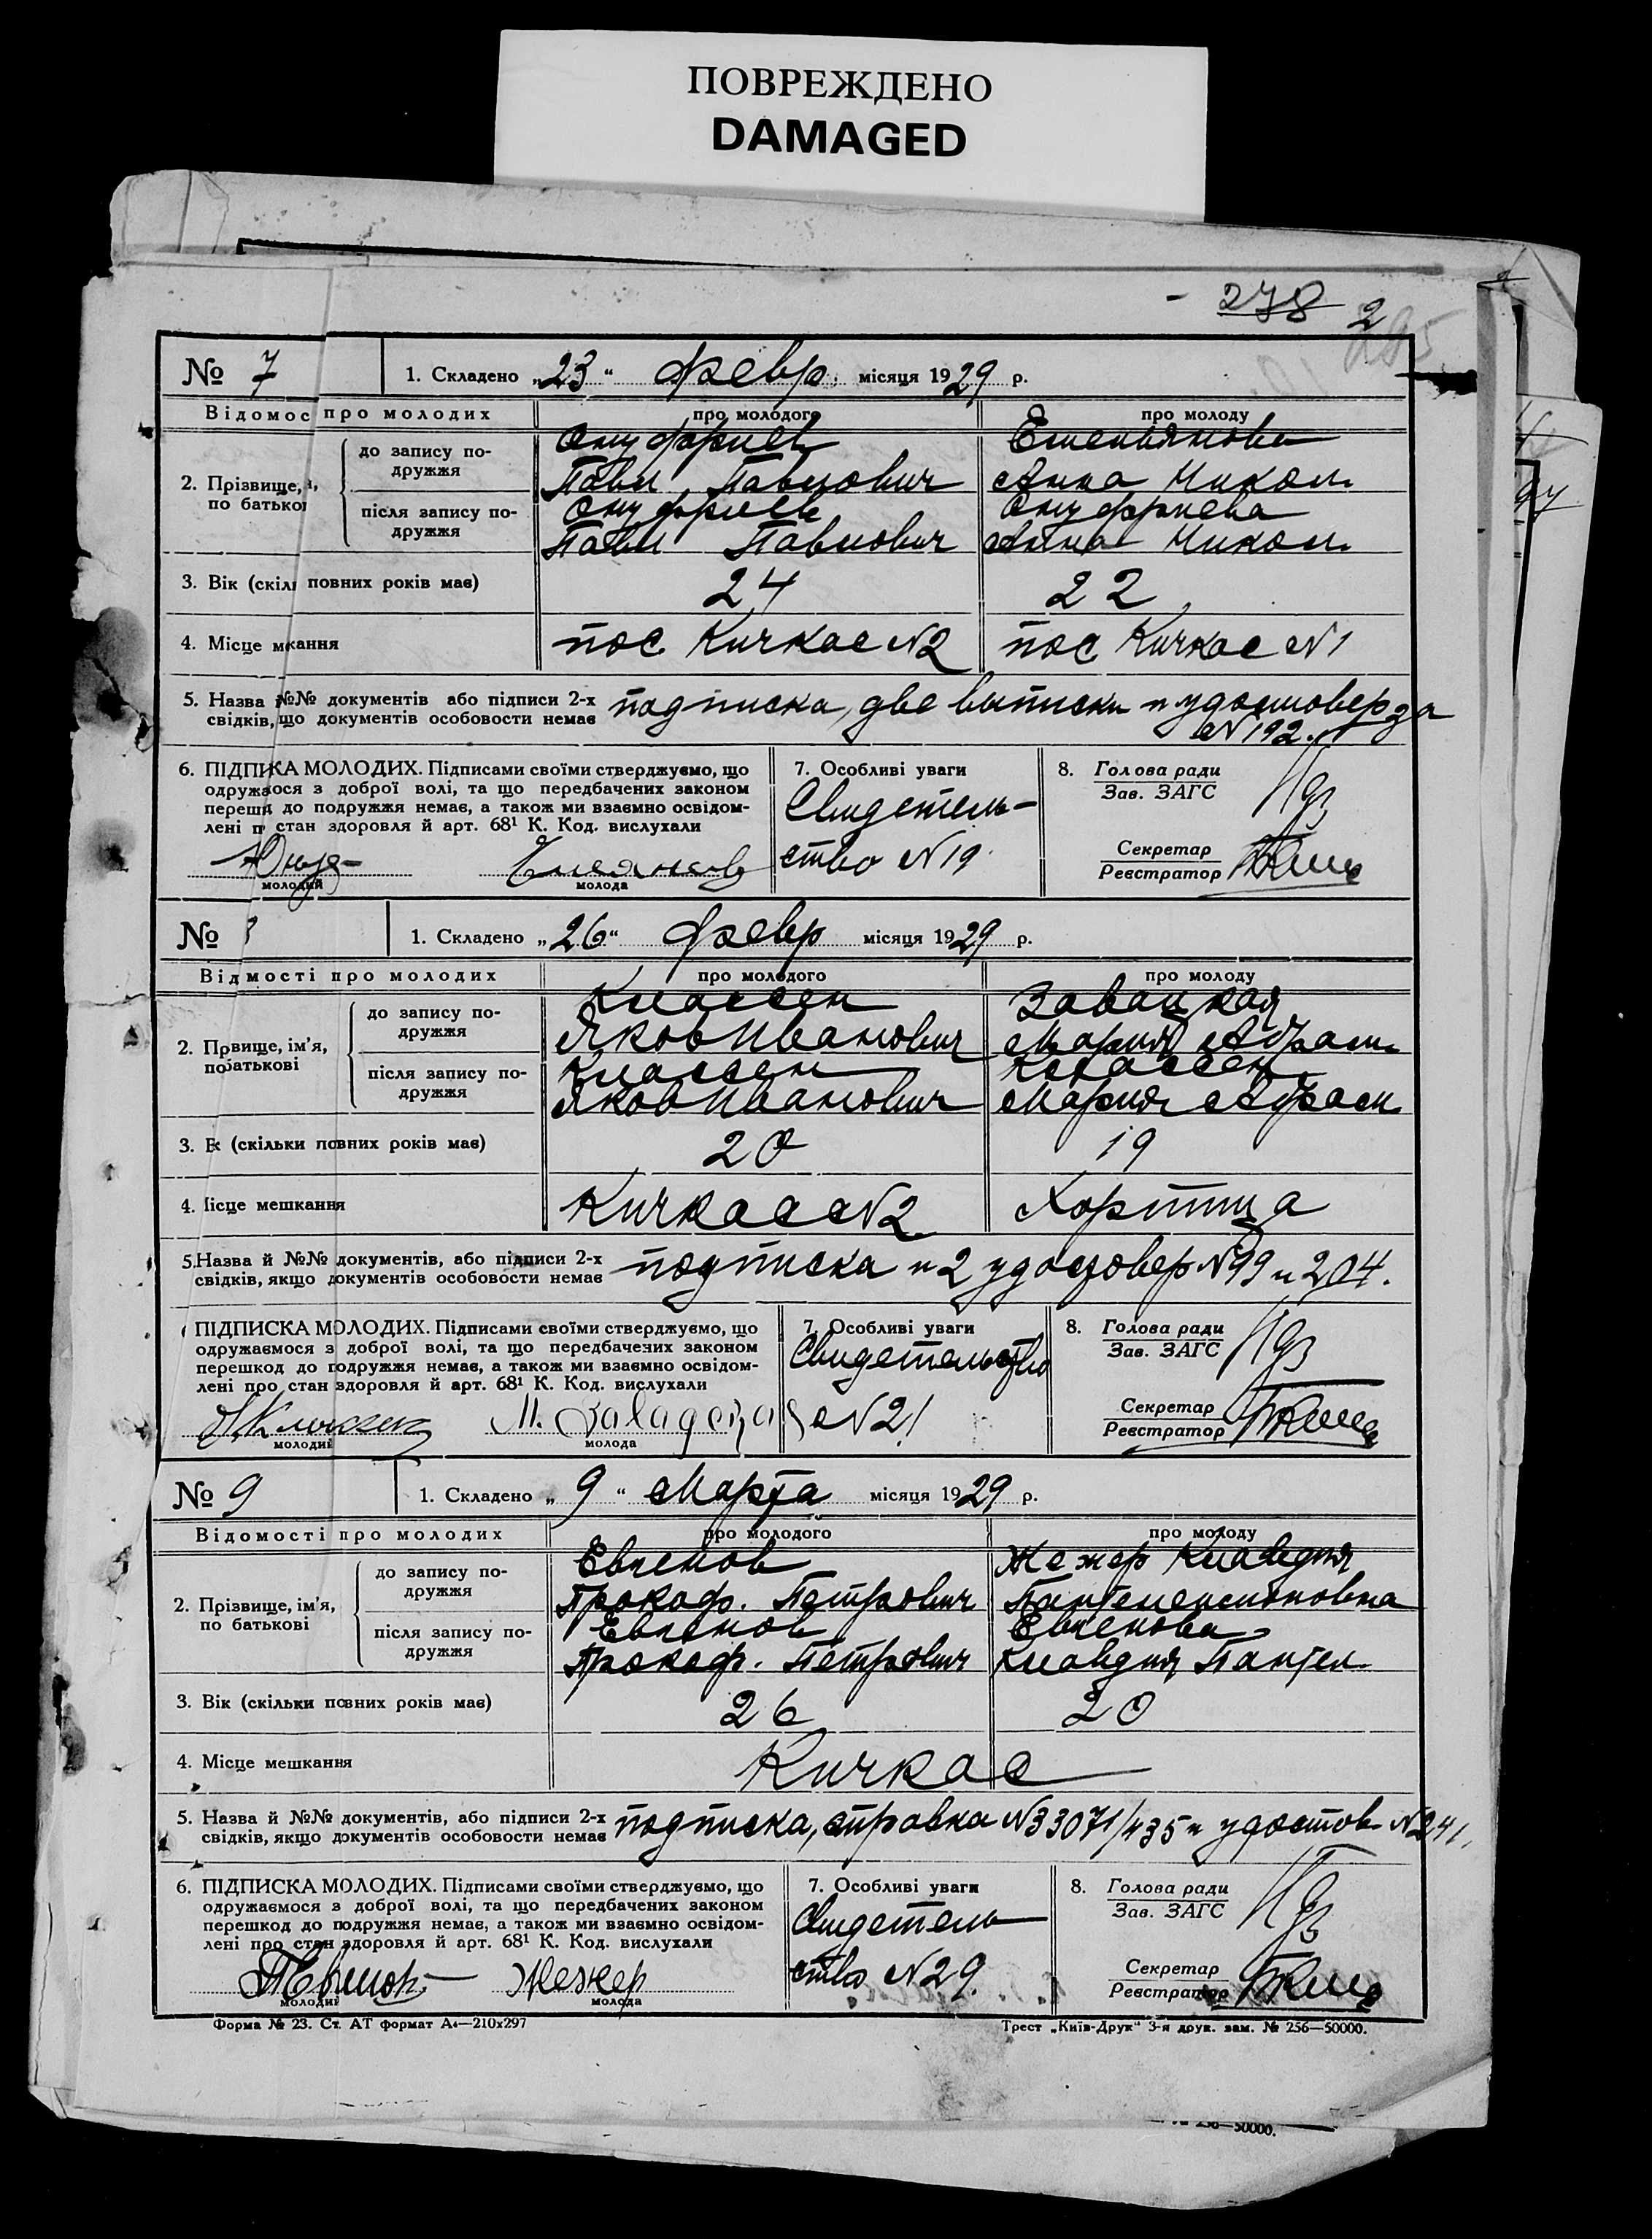 ПОВРЕЖДЕНО
DAMAGED
- 278 2
295
№ 7 1. Складено „23“ февр. місяця 1929 р.
Відомос про молодих про молодого про молоду
2. Прізвище,
по батьков
до запису по-
дружжя
Онуфриев Емельянова
Павел Павлович Анна Никол.
після запису по-
дружжя
Онуфриев Онуфриева
Павел Павлович Анна Никол.
3. Вік (скіль повних років має) 24 22
4. Місце мкання пос Кичкас №2 пос Кичкас №1
5. Назва №№ документів або підписи 2-х
свідків, що документів особовости немає
подписка, две выписки и удостовер за
№ 192.
6. ПІДПИКА МОЛОДИХ. Підписами своїми стверджуємо, що
одружаюся з доброї волі, та що передбачених законом
перешк до подружжя немає, а також ми взаємно освідом-
лені п стан здоровля й арт. 68¹ К. Код. вислухали
молодий молода
7. Особливі уваги
Свидетель-
ство №19.
8. Голова ради
Зав. ЗАГС
Секретар
Реєстратор
№ 1. Складено „26“ февр місяця 1929 р.
Відмості про молодих про молодого про молоду
2. Првище, ім’я,
по батькові
до запису по-
дружжя
Классен Завацкая
Яков Иванович Мария Абрам.
після запису по-
дружжя
Классен Классен
Яков Иванович Мария Абрам.
3. Вк (скільки повних років має) 20 19
4. Місце мешкання Кичкасс №2 Хортица
5. Назва й №№ документів, або підписи 2-х
свідків, якщо документів особовости немає
подписка и 2 удостовер №99 и 204.
ПІДПИСКА МОЛОДИХ. Підписами своїми стверджуємо, що
одружаємося з доброї волі, та що передбачених законом
перешкод до подружжя немає, а також ми взаємно освідом-
лені про стан здоровля й арт. 68¹ К. Код. вислухали
Я. Классен
молодий молода
7. Особливі уваги
Свидетельство
№21
8. Голова ради
Зав. ЗАГС
Секретар
Реєстратор
№ 9 1. Складено „9“ Марта місяця 1929 р.
Відомості про молодих про молодого про молоду
2. Прізвище, ім’я,
по батькові
до запису по-
дружжя
Евленов Жежер Клавдия
Прокоф. Петрович Пантелеимоновна
після запису по-
дружжя
Евленов Евленова
Прокоф. Петрович Клавдия Пантел.
3. Вік (скільки повних років має) 26 20
4. Місце мешкання Кичкас
5. Назва й №№ документів, або підписи 2-х
свідків, якщо документів особовости немає
подписка, справка №33071/435 и удостов №241.
6. ПІДПИСКА МОЛОДИХ. Підписами своїми стверджуємо, що
одружаємося з доброї волі, та що передбачених законом
перешкод до подружжя немає, а також ми взаємно освідом-
лені про стан здоровля й арт. 68¹ К. Код. вислухали
Жежер
молодий молода
7. Особливі уваги
Свидетель
ство №29.
8. Голова ради
Зав. ЗАГС
Секретар
Реєстратор
Форма № 23. Ст. АТ формат А4—210х297 Трест „Київ-Друк“ 3-я друк. зам. № 256—50000.
256—50000.